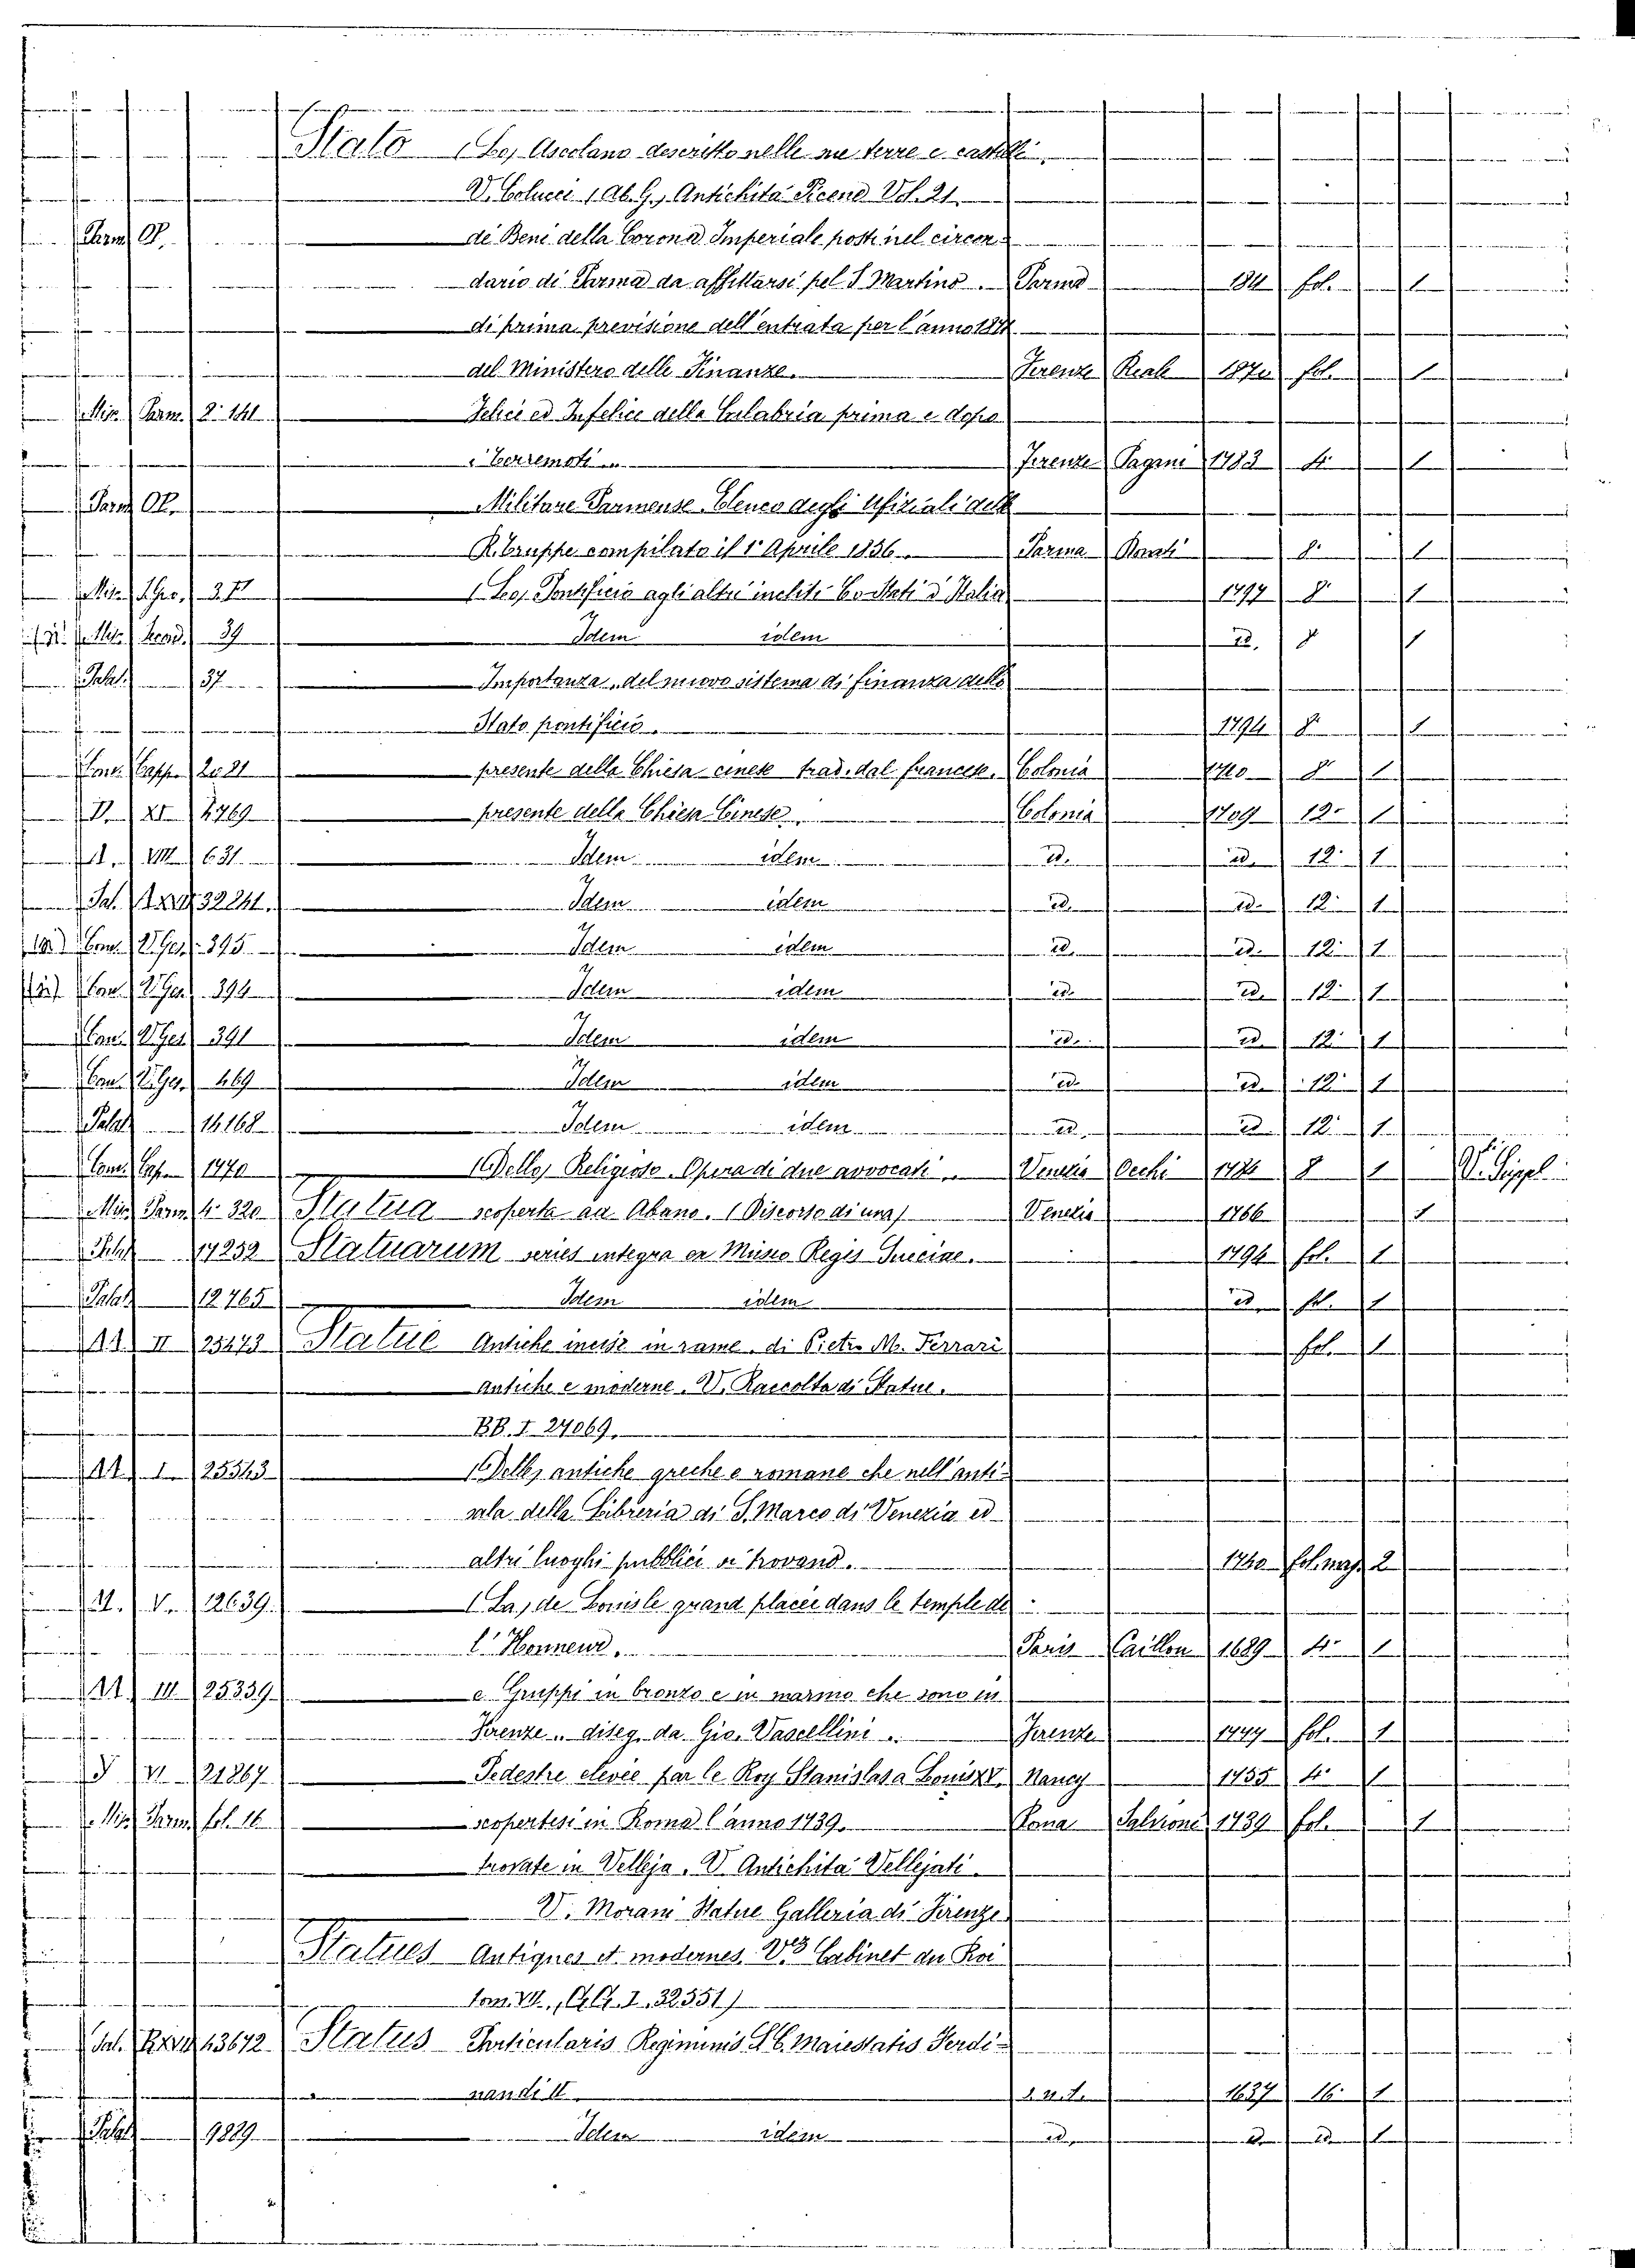 Stato (Lo) Ascolano descritto nelle sue terre e castelli.
V. Colucci (Ab. G.) Antichità Picene Vol. 21.
Parm. di Beni della Corona Imperiale posti nel circon-
dario di Parma da affittarsi pel S. Martino. Parma 1811 fol. 1
di prima previsione dell'entrata per l'anno 1871
del Ministero delle Finanze. Firenze Reale 1870 fol. 1
Misc. Parm. 8º 141 Felice ed Infelice della Calabria prima e dopo
i Terremoti. Firenze Pagani 1783 4º 1
Parm. Militare Parmense. Elenco degli Ufiziali delle
R. Truppe compilato il 1º Aprile 1836. Parma Rossetti 8º 1
Misc. (Lo) Pontificio agli altri incliti Co-Stati d'Italia 1797 8º 1
Misc. 39 Idem idem id. 8 1
Palat. 37 Importanza del nuovo sistema di finanza dello
Stato pontificio. 1794 8º 1
Conv. Capp. 2021 presente della Chiesa cinese trad. dal francese. Colonia 1710 8º 1
D. XI 4769 presente della Chiesa Cinese. Colonia 1709 12º 1
VIII 631 Idem idem id. id. 12º 1
Sal. 32241 Idem idem id. id. 12º 1
Conv. V. Ges. 395 Idem idem id. id. 12º 1
Conv. V. Ges. 394 Idem idem id. id. 12º 1
Conv. V. Ges. 391 Idem idem id. id. 12º 1
Conv. V. Ges. 469 Idem idem id. id. 12º 1
Palat. 14168 Idem idem id. id. 12º 1
Conv. Cap. 1470 (Dello) Religioso. Opera di due avvocati. Venezia Occhi 8 1 V. Suppl.
Misc. Parm. 4º 320 Statua scoperta ad Abano. (Discorso di una) Venezia 1766 1
Palat. 14252 Statuarum series integra ex Museo Regis Sueciae. 1794 fol. 1
Palat. 12765 Idem idem id. fol. 1
AA II 25473 Statue Antiche incise in rame di Pietro M. Ferrari fol. 1
Antiche e moderne. V. Raccolta di Statue.
BB. I 27069.
AA I 25543 (Delle) antiche greche e romane che nell'anti-
sala della Libreria di S. Marco di Venezia ed
altri luoghi pubblici si trovano. 1740 fol. mag. 2
V. 12639 (La) de Louis le grand placée dans le temple de
l'Honneur. Paris Caillou 1689 4º 1
AA III 25339 e Gruppi in bronzo e in marmo che sono in
Firenze, diseg. da Gio. Vascellini. Firenze 1777 fol. 1
VI 21867 Pedestre elevée par le Roy Stanislas a Louis XV. Nancy 1755 4º 1
Misc. Parm. fol. 16 scopertesi in Roma l'anno 1739. Roma Salvioni 1739 fol. 1
trovate in Velleja. V. Antichità Vellejati.
V. Morani Statue Galleria di Firenze
Statues Antiques et modernes. V. Cabinet du Roi
tom. VII., (GG. I. 32551)
Sal. 43672 Status Particularis Regiminis S. C. Maiestatis Ferdi-
nandi II s. n. t. 1637 16º 1
Palat. 9889 Idem idem id. id. id. 1